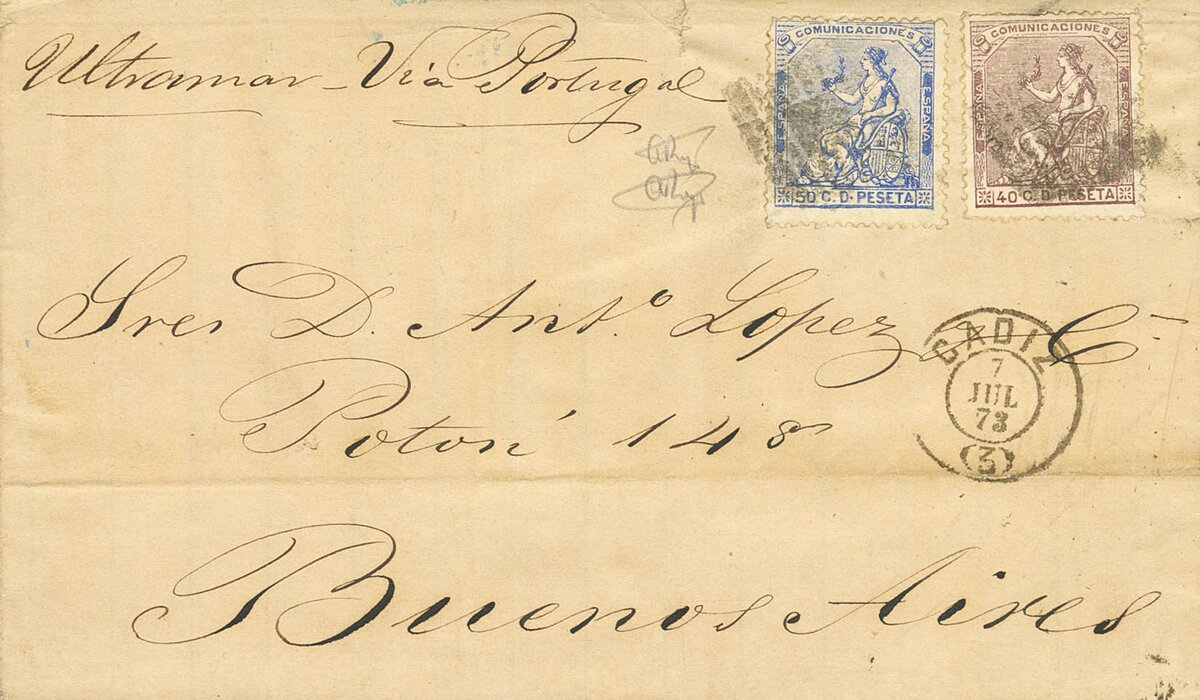 Ultramar - Via Portugal
COMUNICACIONES
ESPAÑA
ESPAÑA
50 C. D. PESETA
COMUNICACIONES
ESPAÑA
ESPAÑA
40 C. D. PESETA
Sres D. Antº Lopez y Cª
Potosí 148
CADIZ
7
JUL
73
(3)
Buenos Aires